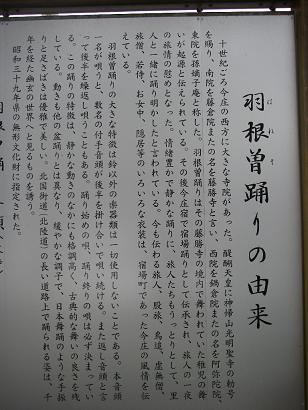 羽根曽踊りの由来
はねそ
十世紀ごろ今庄の西方に大きな寺院があった。醍醐天皇に神帰山光明聖寺の勅号
を賜り、南院を藤倉院またの名を藤勝寺と言い、西院を鍋倉院またの名を阿弥陀院、
東院を孫嫡子庵と称した。羽根曽踊りはその藤勝寺の境内で舞われていた稚児の舞
いが起源と伝えられている。その後今庄宿で宿場踊りとして伝承され、旅人の一夜
の旅情の慰めとなった。情緒豊かで静かな踊りに、旅人たちもうっとりとして、里
人と一緒に踊り明かしたと言われている。今も伝わる旅人、股旅、鳥追、虚無僧、
旅僧、若侍、お女中、隠居等のいろいろな衣装は、宿場町であった今庄の風情を伝
えている。
羽根曽踊りの大きな特徴は鈴以外の楽器類は一切使用しないことである。本音頭
一名が唄うと、数名の付音頭が後半を掛け合いで唄い続ける。また返し音頭と言
って後半を繰返し唄うこともある。踊り始めの唄、踊り終りの唄は必ず決まってい
る。この踊りの特徴は、静かな動きのなかにも格調高く、古典的な舞いの良さを残
している。動きも他の盆踊りとは異なり、緩やかな調子で、日本舞踊のような手振
りと足さばきは優雅で美しい。北国街道(北陸道)の長い道路上で踊られる姿は、千
年を経た幽玄の世界へと見るものを誘う。
昭和三十九年県の無形文化財に指定された。